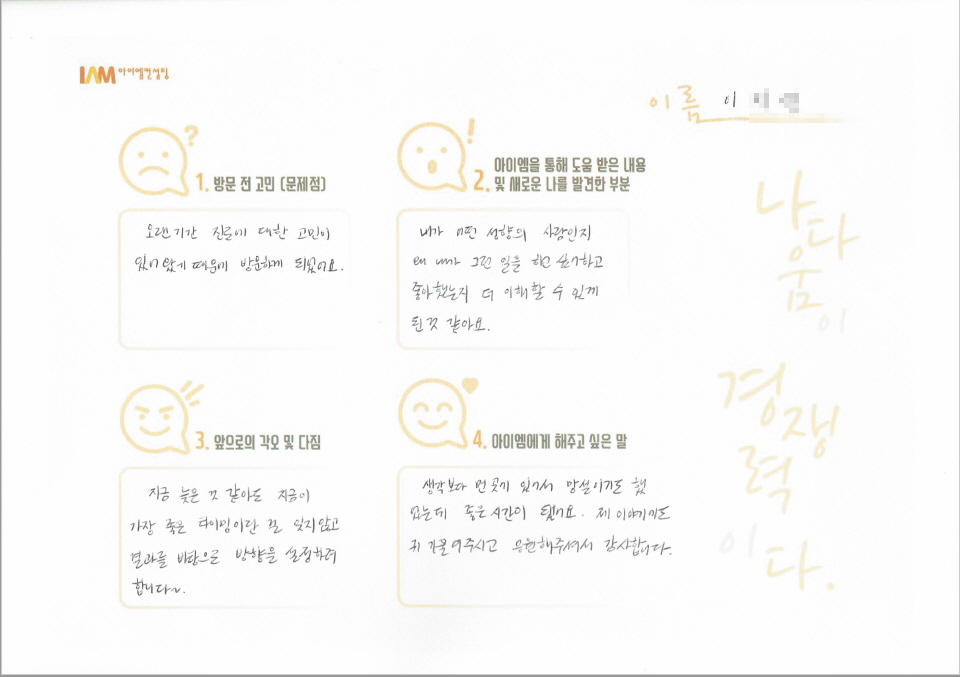 IAM 아이엠컨설팅
이름 이
1. 방문 전 고민 (문제점)
오랜기간 진로에 대한 고민이
있어 왔기 때문에 방문하게 되었어요.
2. 아이엠을 통해 도움 받은 내용
및 새로운 나를 발견한 부분
내가 어떤 성향의 사람인지
왜 내가 그런 일을 하고 싶어하고
좋아했는지 더 이해할 수 있게
된 것 같아요.
3. 앞으로의 각오 및 다짐
지금 늦은 것 같아도 지금이
가장 좋은 타이밍이란 걸 잊지않고
결과를 바탕으로 방향을 설정하려
합니다~.
4. 아이엠에게 해주고 싶은 말
생각보다 먼 곳에 있어서 망설이기도 했
었는데 좋은시간이 됐어요. 제 이야기에도
귀 기울여주시고 응원해주셔서 감사합니다.
나다움이
경쟁력이다.